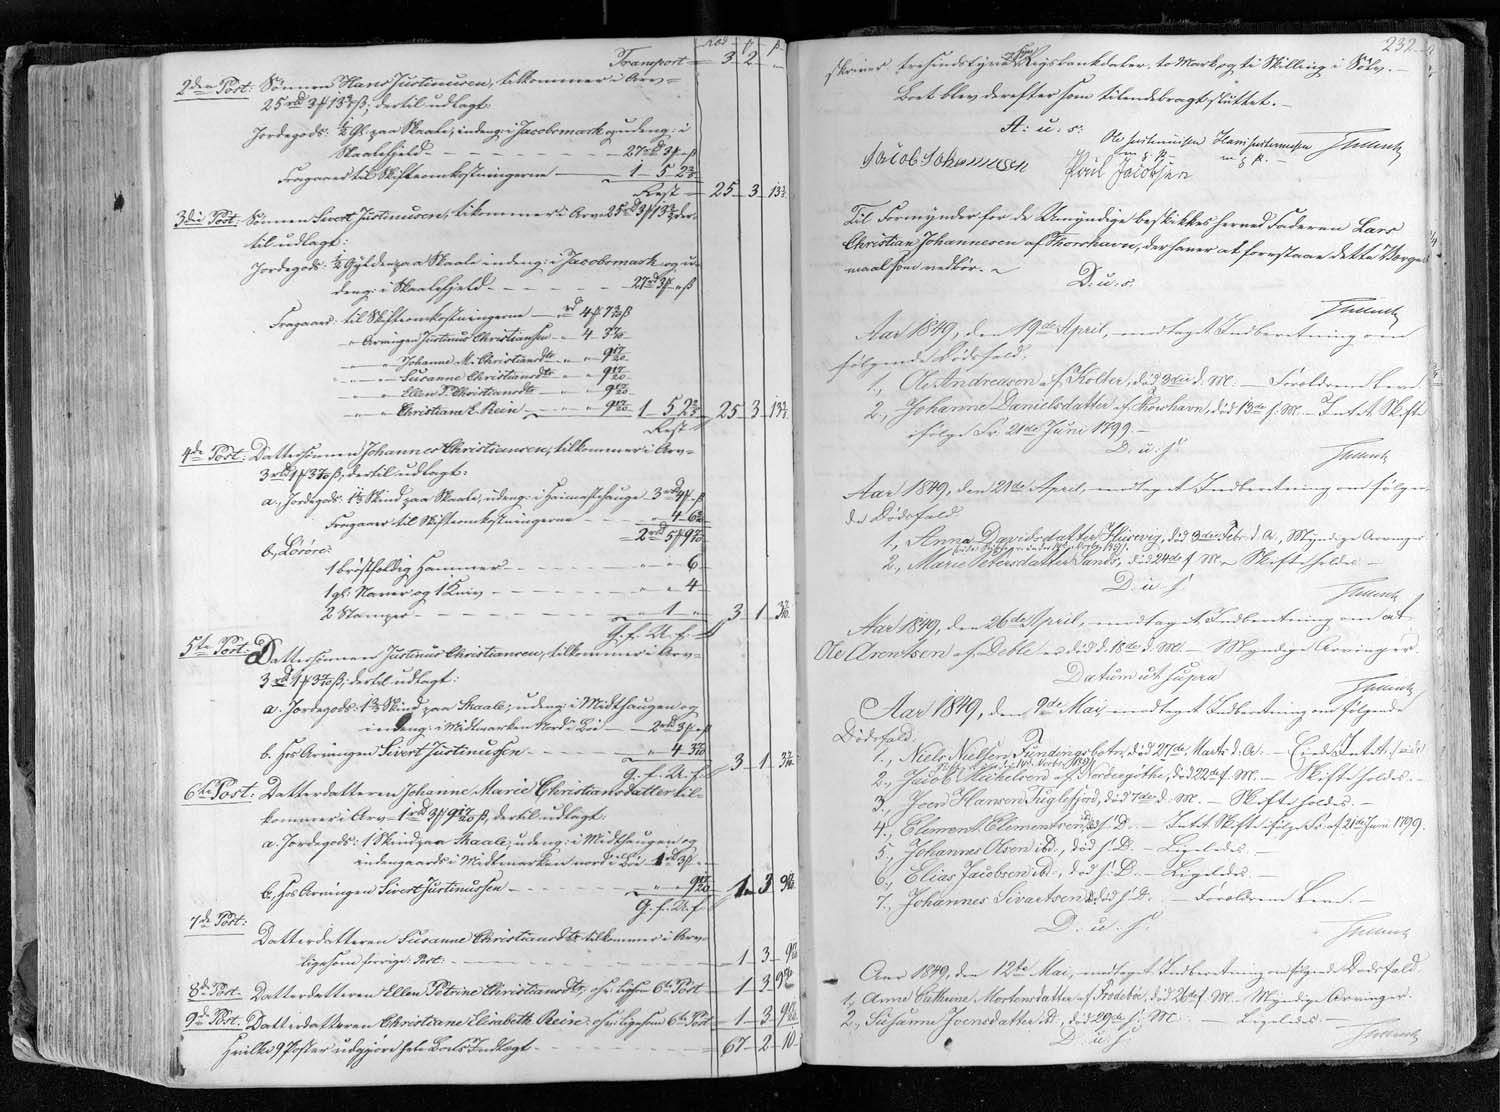 Rbd. ꝟ ß
Transport = 3 2 „
2den Post: Sönnen Hans Justinusen, tilkommer i Arv =
25 rd 3 ꝟ 13⅔ ß, dertil udlagt:
Jordegods: ½ Gl. paa Skaale, indeng: i Jacobsmark og udeng: i
Skaalefjeld - - - - - 27 rd 3 ꝟ „ ß
Fragaaer til Skifteomkostningerne - 1 - 5 2⅔
Rest = 25 3 13⅓
3die Post: Sönnen Sivert Justinusen, tilkommer i Arv 25 rd 3 ꝟ 13⅓ ß der-
til udlagt:
Jordegods: ½ Gylden paa Skaale indeng: i Jacobsmark og u-
deng: i Skaalefjeld - - - - - 27 rd 3 ꝟ „ ß
Fragaaer: til Skifteomkostningerne - „ rd 4 ꝟ 7 ß
„ Arvingen Justinus Christiansen „ 4 - 3
„ Johanne M. Christiansdtr „ „ 9 17/20
„ Susanne Christiansdtr „ „ 9 17/20
„ Ellen P. Christiansdtr „ „ 9 17/20
„ Christiane E. Rein „ „ 9 17/20 1 - 5 2⅔ 25 3 13⅓
Rest
4de Post: Dattersönnen Johannes Christiansen, tilkommer i Arv =
3 rbd 1 ꝟ 3 ß, dertil udlagt:
a., Jordegods: 1½ Skind paa Skaale, udeng: i Heimastehauge 3 rd 4 ꝟ „ ß
Fragaaer til Skifteomkostningerne - - „ 4 - 6
2 rd 5 ꝟ 9
b., Lösöre:
1 bröstfoldig Hammer - - - „ „ 6
1 gl: Naver og 1 Kniv - - - „ „ 4
2 Stamper - - - „ 1 „ 3 1 3
G. f. U. f.
5te Post: Dattersönnen Justinus Christiansen, tilkommer i Arv =
3 rd 1 ꝟ 3 ß, dertil udlagt:
a. Jordegods: 1½ Skind paa Skaale, udeng: i Midthaugen og
indeng: i Midtmarken Nord i Böe - 2 rd 3 ꝟ „ ß
b. hos Arvingen Sivert Justinussen - - - „ 4 3 3 1 3
G. f. U. f.
6te Post: Datterdatteren Johanne Marie Christiansdatter til-
kommer i Arv - 1 rd 3 ꝟ 9 17/20 ß, dertil udlagt:
a. Jordegods: 1 Skind paa Skaale, udeng: i Midthaugen og
indengaards i Midtmarken nord i Böe 1 rd 3 ꝟ „
b., hos Arvingen Sivert Justinussen - - - „ „ 9 17/20 1 3 9 17/20
G. f. U. f.
7de Post:
Datterdatteren Susanne Christiansdtr tilkommer i Arv
ligesom forrige Post: - - - 1 3 9
8de Post. Datterdatteren Ellen Petrine Christiansdtr, ligesom 6te Post - 1 3 9
9de Post. Datterdatteren Christiane Elisabeth Rein: ligesom 6te Post - 1 3 9
Hvilke 9 Poster udgjöre hele Boets Indtægt - - - 67 2 10
232.
skriver trehundstyve og syv Rigsbankdaler, to Mark og ti Skilling i Sölv. -
Boet blev derefter som tilendebragt sluttet. -
A: u: s:
Ole Justinussen Hans Justinusen
m. f. P. m. f. P.
Jacob Johannesen Poul Jacobsen
Til Formynder for de Umyndige beskikkes herved Faderen Lars
Christian Johannesen af Thorshavn, der haver at forestaae dette Værge-
maal som vedbör. -
D. u. s.
Aar 1849, den 19de April, modtaget Indberetning om
fölgende Dödsfald:
1., Ole Andreasen af Kolter, död 3die d. M: - Foreldrene leve.
2., Johanne Danielsdatter af Thorshavn, död 13de s. M. - Intet Skifte
ifölge Fr. 21de Juni 1799. -
D. u. s.
Aar 1849, den 21de April, modtaget Indberetning om fölgen-
de Dödsfald.
1., Anna Davidsdatter Husevig, död 3die Febr. d. A., Myndige Arvinger
2., Marie Petersdatter Sands, död 24de f. M. - Skifte holdes. -
D. u. s.
Aar 1849, den 26de April, modtaget Indberetning om at
Ole Arentsen af Deble er död d. 18de d. M. - Myndige Arvinger.
Datum ut supra
Aar 1849, den 9de Mai, modtaget Indberetning om fölgende
Dödsfald.
1., Niels Nielsen, Fundingsbotn, död 27de Marts d. A. -
2., Jacob Michelsen af Nordregöthe, död 22de f. M. - Skifte holdes. -
3., Joen Hansen Fuglefjord, död 7de d. M. - Skifte holdes. -
4., Clement Clementsen ibd, s. D. - Intet Skifte ifölge Fr. af 21de Juni 1799.
5., Johannes Olsen ibd., död s. D. - Ligeledes. -
6., Elias Jacobsen ibd., död s. D. - Ligeledes. -
7., Johannes Sivartsen ibd, död s. D. - Foreldrene leve. -
D. u. s.
Aar 1849, den 12te Mai, modtaget Indberetning om fölgende Dödsfald.
1., Anne Cathrine Mortensdatter af Frodebö, död 26de f. M. - Myndige Arvinger.
2., Susanne Joensdatter ibd, död 29de s. M: - Ligeledes. -
D. u. s.